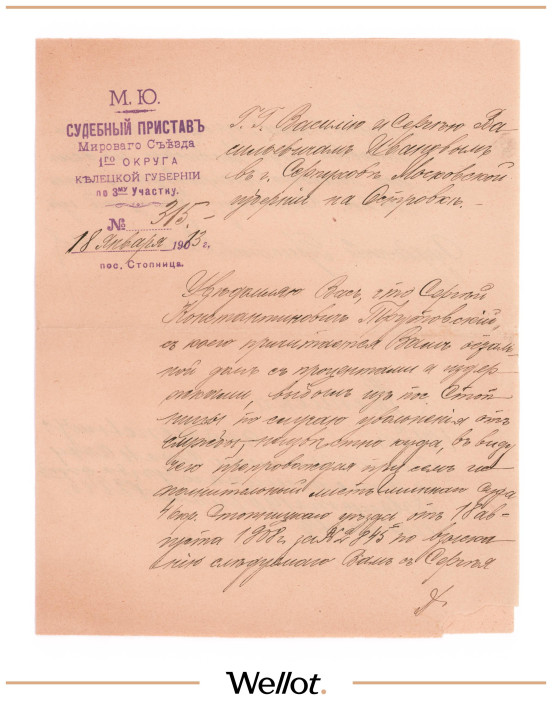 М. Ю.
СУДЕБНЫЙ ПРИСТАВЪ
Мироваго Съѣзда
1го ОКРУГА
КѢЛЕЦКОЙ ГУБЕРНІИ
по 3му Участку.
№ 315.-
18 Января 1903 г.
пос. Стопница.
Г.Г. Василію и Сергѣю Ва-
сильевичамъ Ивановымъ
въ г. Серпуховѣ Московской
губерніи на Островкѣ.-
Увѣдомляю Васъ, что Сергѣй
Константинович
съ коего причитается Вамъ осталь-
ной долгъ съ процентами и издер
жками, выбылъ изъ пос. Стоп
ницы по случаю увольненія отъ
службы, неизвѣстно куда, въ виду
чего препровождая при семъ ис
полнительный листъ гминнаго Суда
4 окр. Стопницкаго уѣзда отъ 18 ав-
густа 1908 г. за № 2945 по взыска
нію слѣдуемаго Вамъ съ Сергѣя
Wellot.